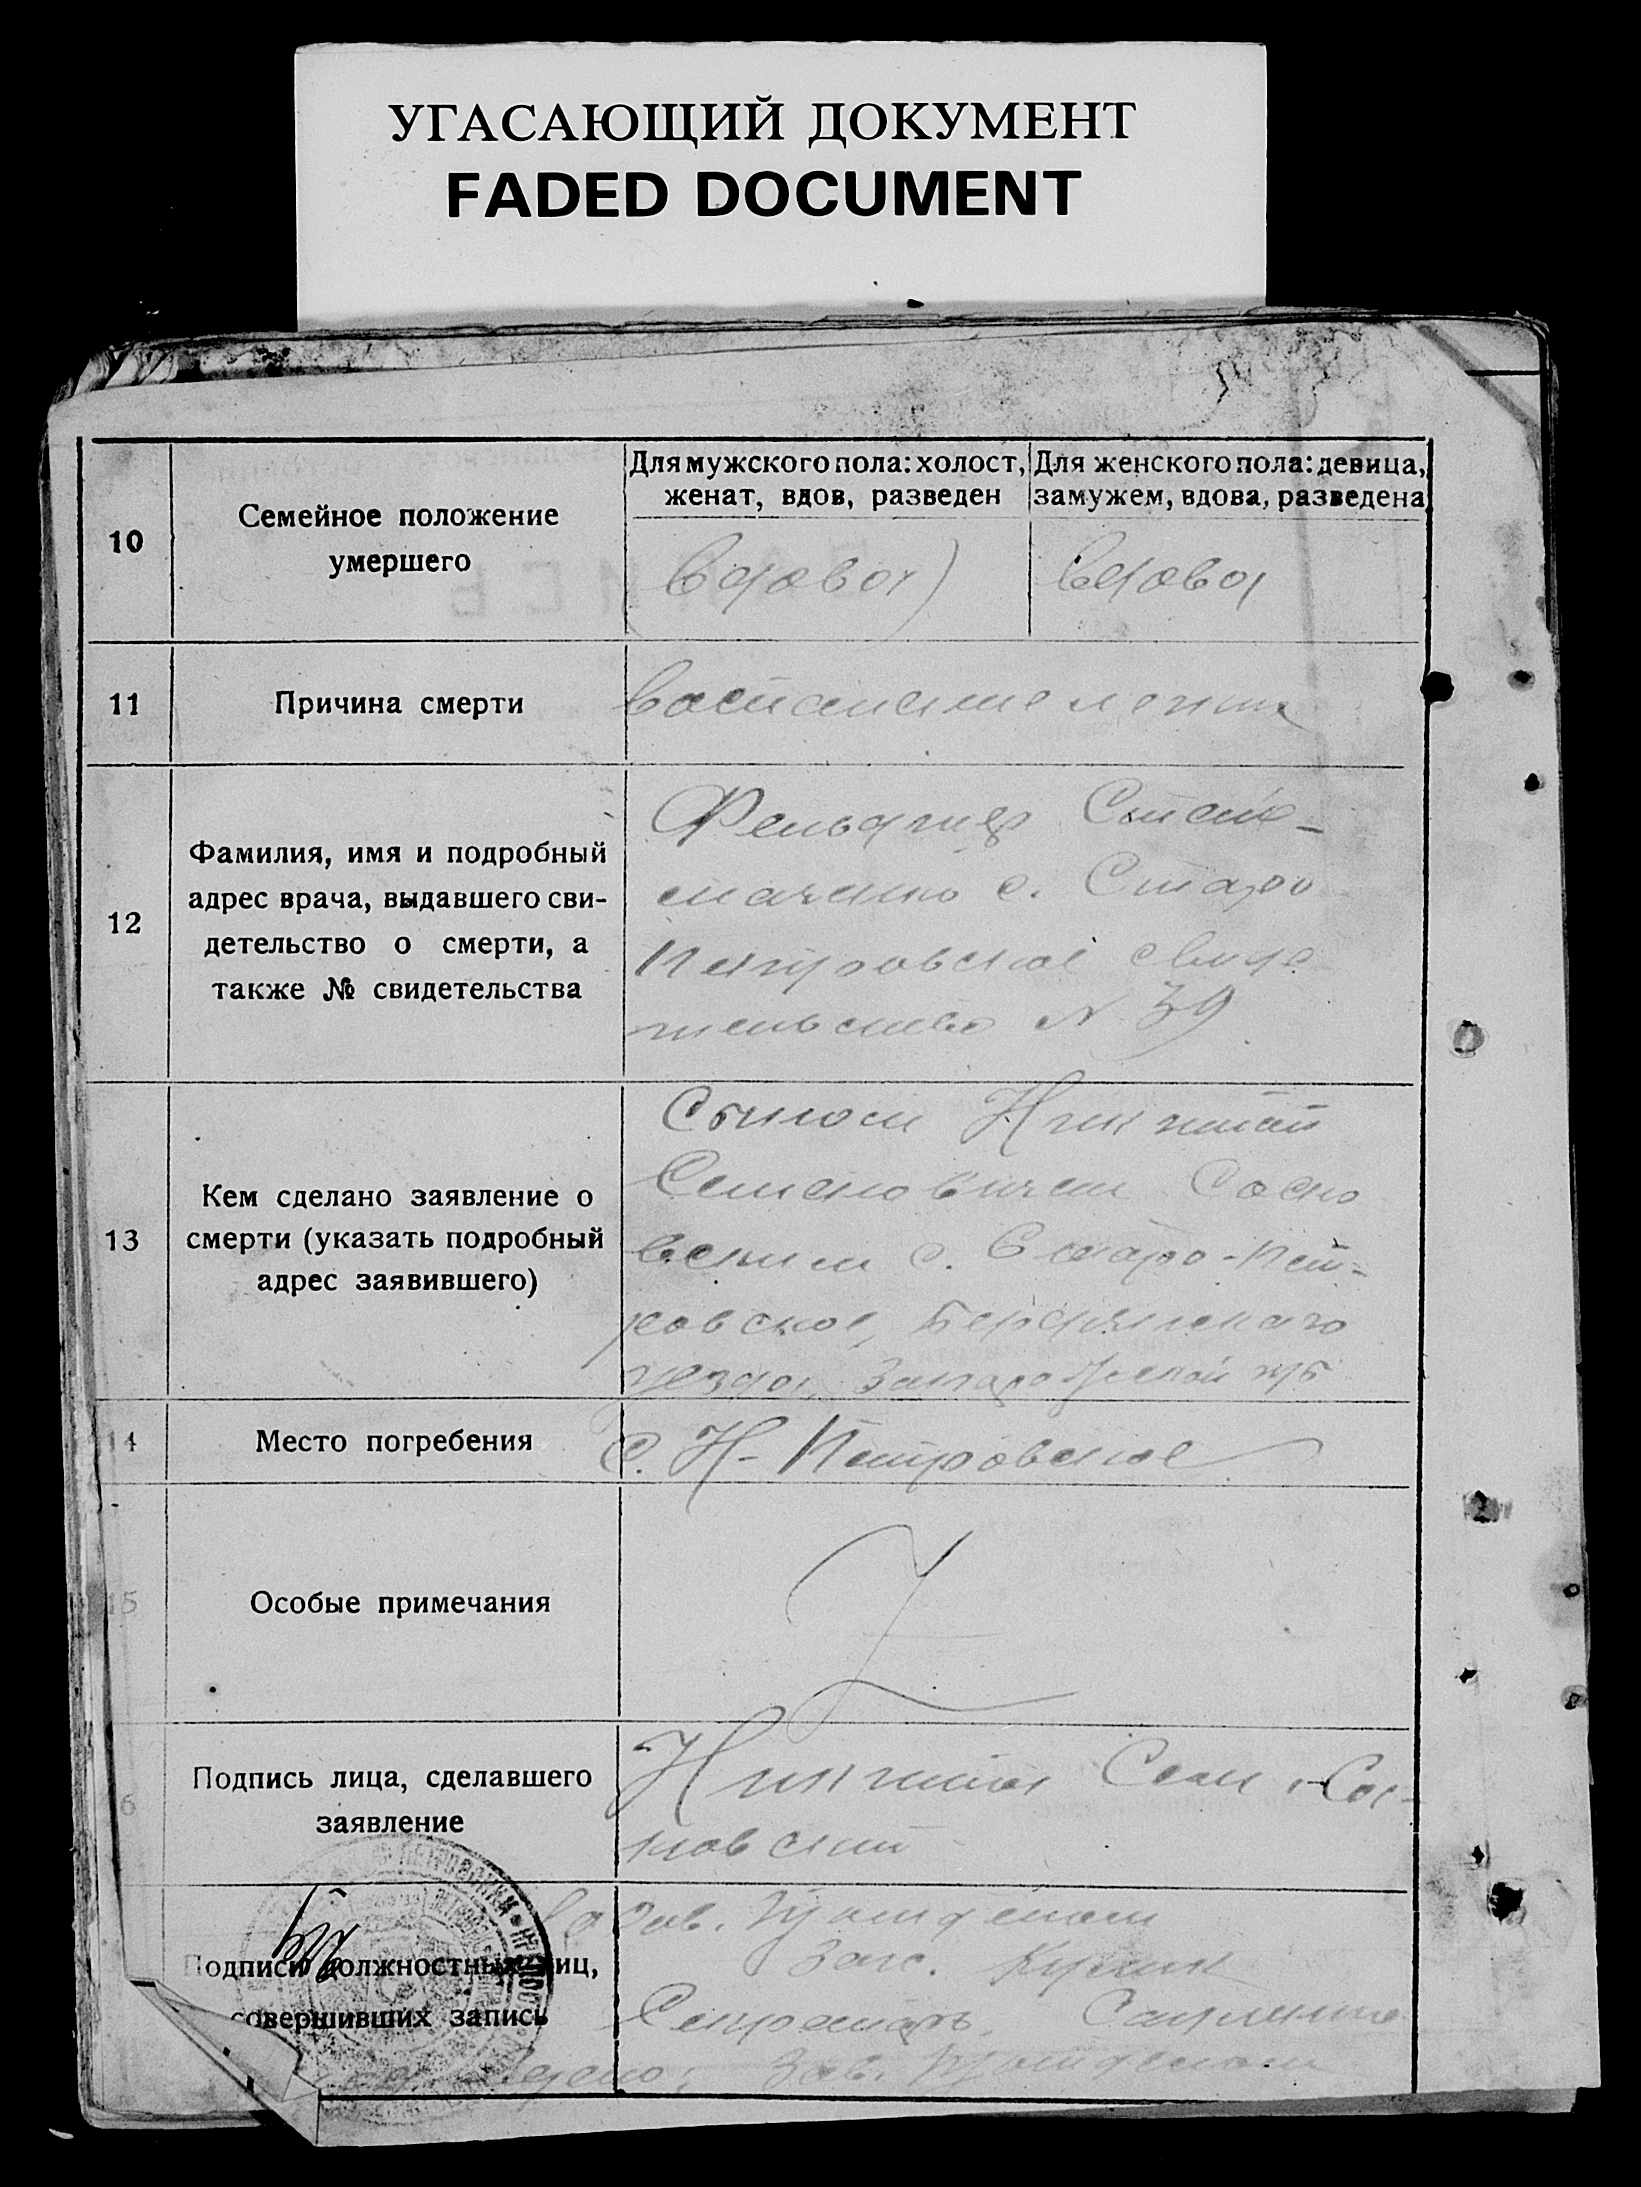 УГАСАЮЩИЙ ДОКУМЕНТ
FADED DOCUMENT
10
Семейное положение
умершего
Для мужского пола: холост,
женат, вдов, разведен
Для женского пола: девица,
замужем, вдова, разведена
вдова)
вдова
11
Причина смерти
12
Фамилия, имя и подробный
адрес врача, выдавшего сви-
детельство о смерти, а
также № свидетельства
Фельдшер
с. Старо
Петровское свиде
тельство N 39
13
Кем сделано заявление о
смерти (указать подробный
адрес заявившего)
Сыном Никитой
Семеновичем Сосно
вским с. Старо-Пет-
ровское, Бердянского
уезда, Запорожской губ
14
Место погребения
с. Н-Петровское
15
Особые примечания
Z
6
Подпись лица, сделавшего
заявление
Никита Сем. Сос-
новский
Подписи должностных лиц,
совершивших запись
Зав.
Загс.
Секретарь
Зав.